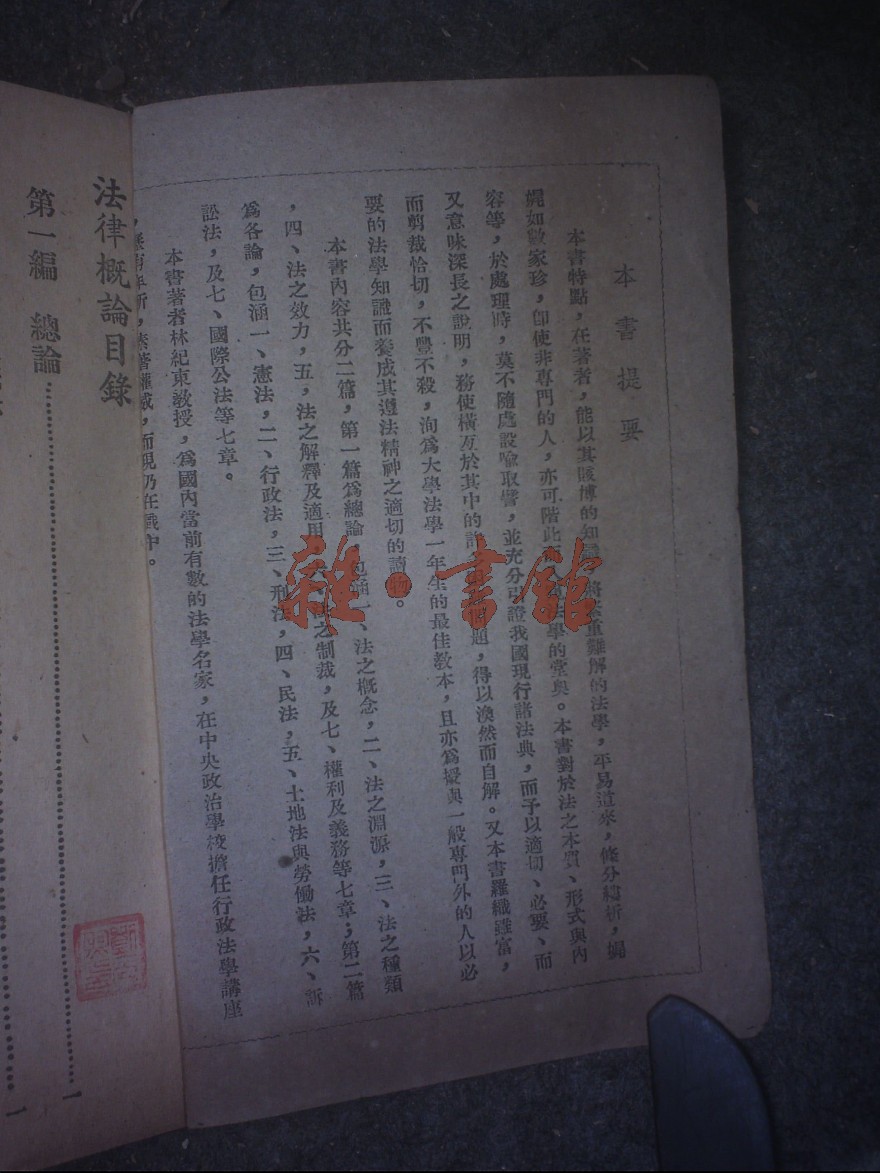 本書提要
本書特點，在著者，能以其賅博的知識，將紮重難解的法學，平易道來，條分縷析，娓
娓如數家珍，卽使非專門的人，亦可階此而　　法學的堂奧。本書對於法之本質、形式與內
容等，於處理時，莫不隨處設喩取譬，並充分引證我國現行諸法典，而予以適切、必要、而
又意味深長之說明，務使橫亙於其中的許　　　題，得以渙然而自解。又本書羅織雖富，
而剪裁恰切，不豐不殺，洵爲大學法學一年生的最佳敎本，且亦爲擬與一般專門外的人以必
要的法學知識而養成其遵法精神之適切的讀物。
本書內容共分二篇，第一篇爲總論，包涵一、法之概念，二、法之淵源，三、法之種類
，四、法之效力，五，法之解釋及適用　　法之制裁，及七、權利及義務等七章；第二篇
爲各論，包涵一、憲法，二、行政法，三、刑法，四、民法，五、土地法與勞働法，六、訴
訟法，及七、國際公法等七章。
本書著者林紀東敎授，爲國內當前有數的法學名家，在中央政治學校擔任行政法學講座
，歷有年所，素著權威，而現仍在職中。
雜·書館
法律概論目錄
第一編　總論……一
一